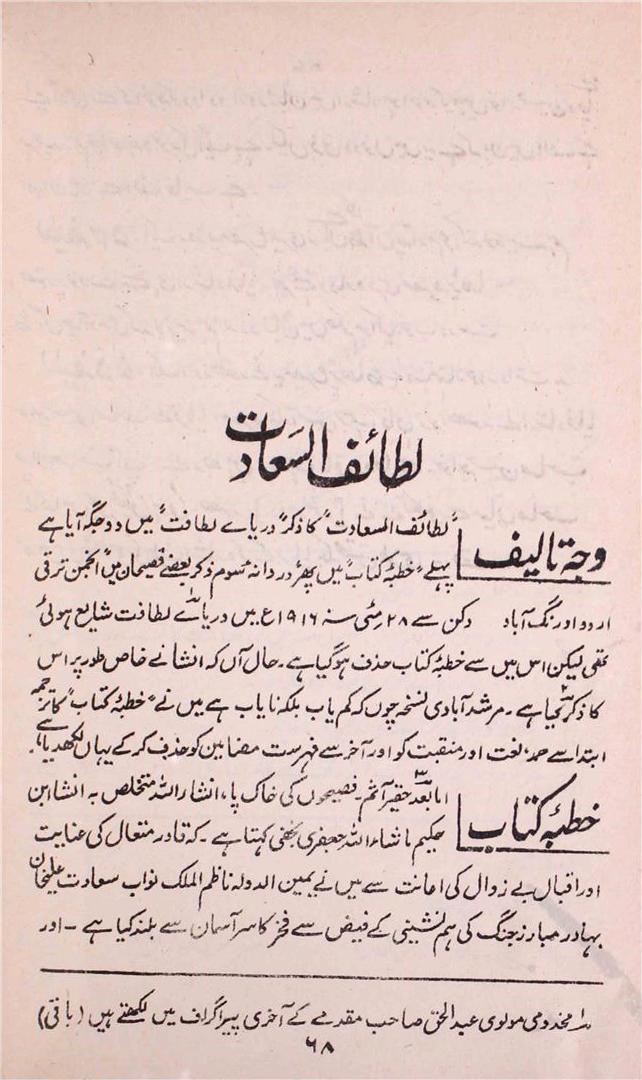 لطائف السعادت
وجہ تالیف
"لطائف السعادت" کا ذکر "دریاے لطافت" میں دو جگہ آیا ہے
پہلے "خطبۂ کتاب" میں پھر دردانہ سوم ذکر بعضے فصیحان میں انجمن ترقی
اردو اورنگ آباد دکن سے ۲۸ مئی سنہ ۱۹۱۶ع میں دریاے لطافت شایع ہوئی
تھی لیکن اس میں سے خطبۂ کتاب حذف ہو گیا ہے۔ حال آں کہ انشا نے خاص طور پر اس
کا ذکر کیا ہے۔ مرشد آبادی نسخہ چوں کہ کم یاب بلکہ نایاب ہے میں نے "خطبۂ کتاب" کا ترجمہ
ابتدا سے حمد، نعت اور منقبت کو اور آخر سے فہرست مضامین کو حذف کر کے یہاں لکھدیا ہے۔
خطبۂ کتاب
اما بعد حقیر آثم۔ فصیحوں کی خاک پا، انشاء اللہ متخلص بہ انشا ابن
حکیم ماشاء اللہ جعفری نجفی کہتا ہے۔ کہ قادر متعال کی عنایت
اور اقبال بے زوال کی اعانت سے میں نے یمین الدولہ ناظم الملک نواب سعادت علیخان
بہادر مبارز جنگ کی ہم نشینی کے فیض سے فخر کا سر آسمان سے بلند کیا ہے۔ اور
۱؎ مخدومی مولوی عبدالحق صاحب مقدمے کے آخری پیراگراف میں لکھتے ہیں (باقی)
۶۸